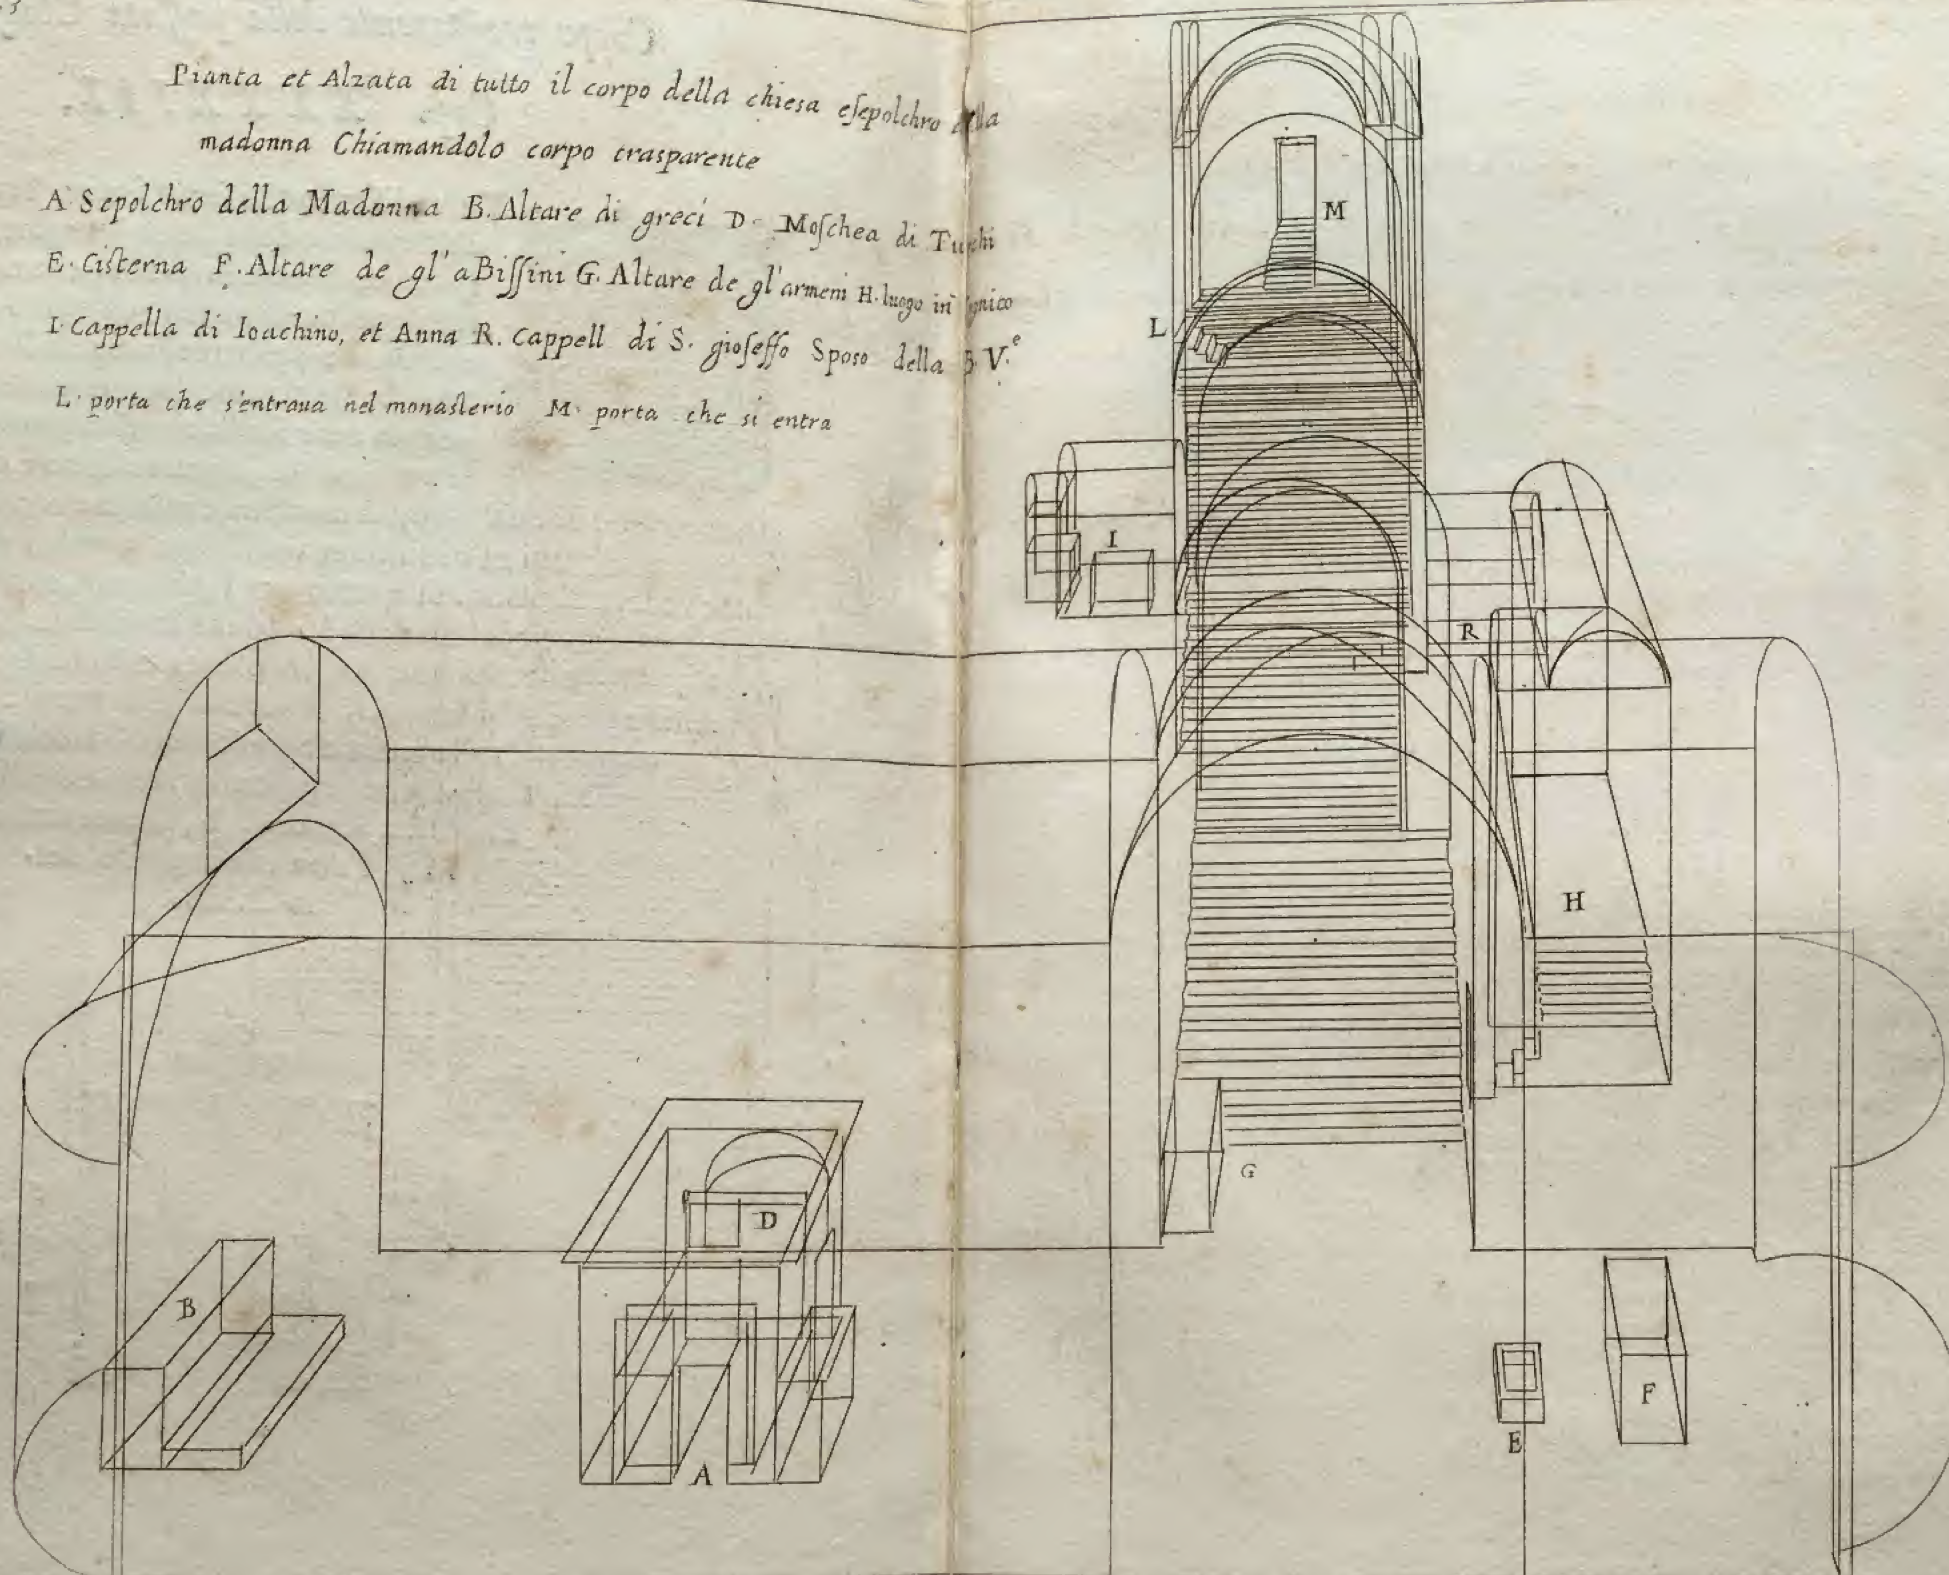 Pianta et Alzata di tutto il corpo della chiesa eſepolchro della
madonna Chiamandolo corpo trasparente
A Sepolchro della Madonna B. Altare di greci D. Moſchea di Turchi
E. Ciſterna F. Altare de gl' aBiſſini G. Altare de gl' armeni H. luogo in
I. Cappella di Ioachino, et Anna R. Cappell di S. gioſeffo Sposo della B. V.e
L. porta che s'entraua nel monaſterio M. porta che si entra
M
L
I
R
H
G
D
B
F
E
A